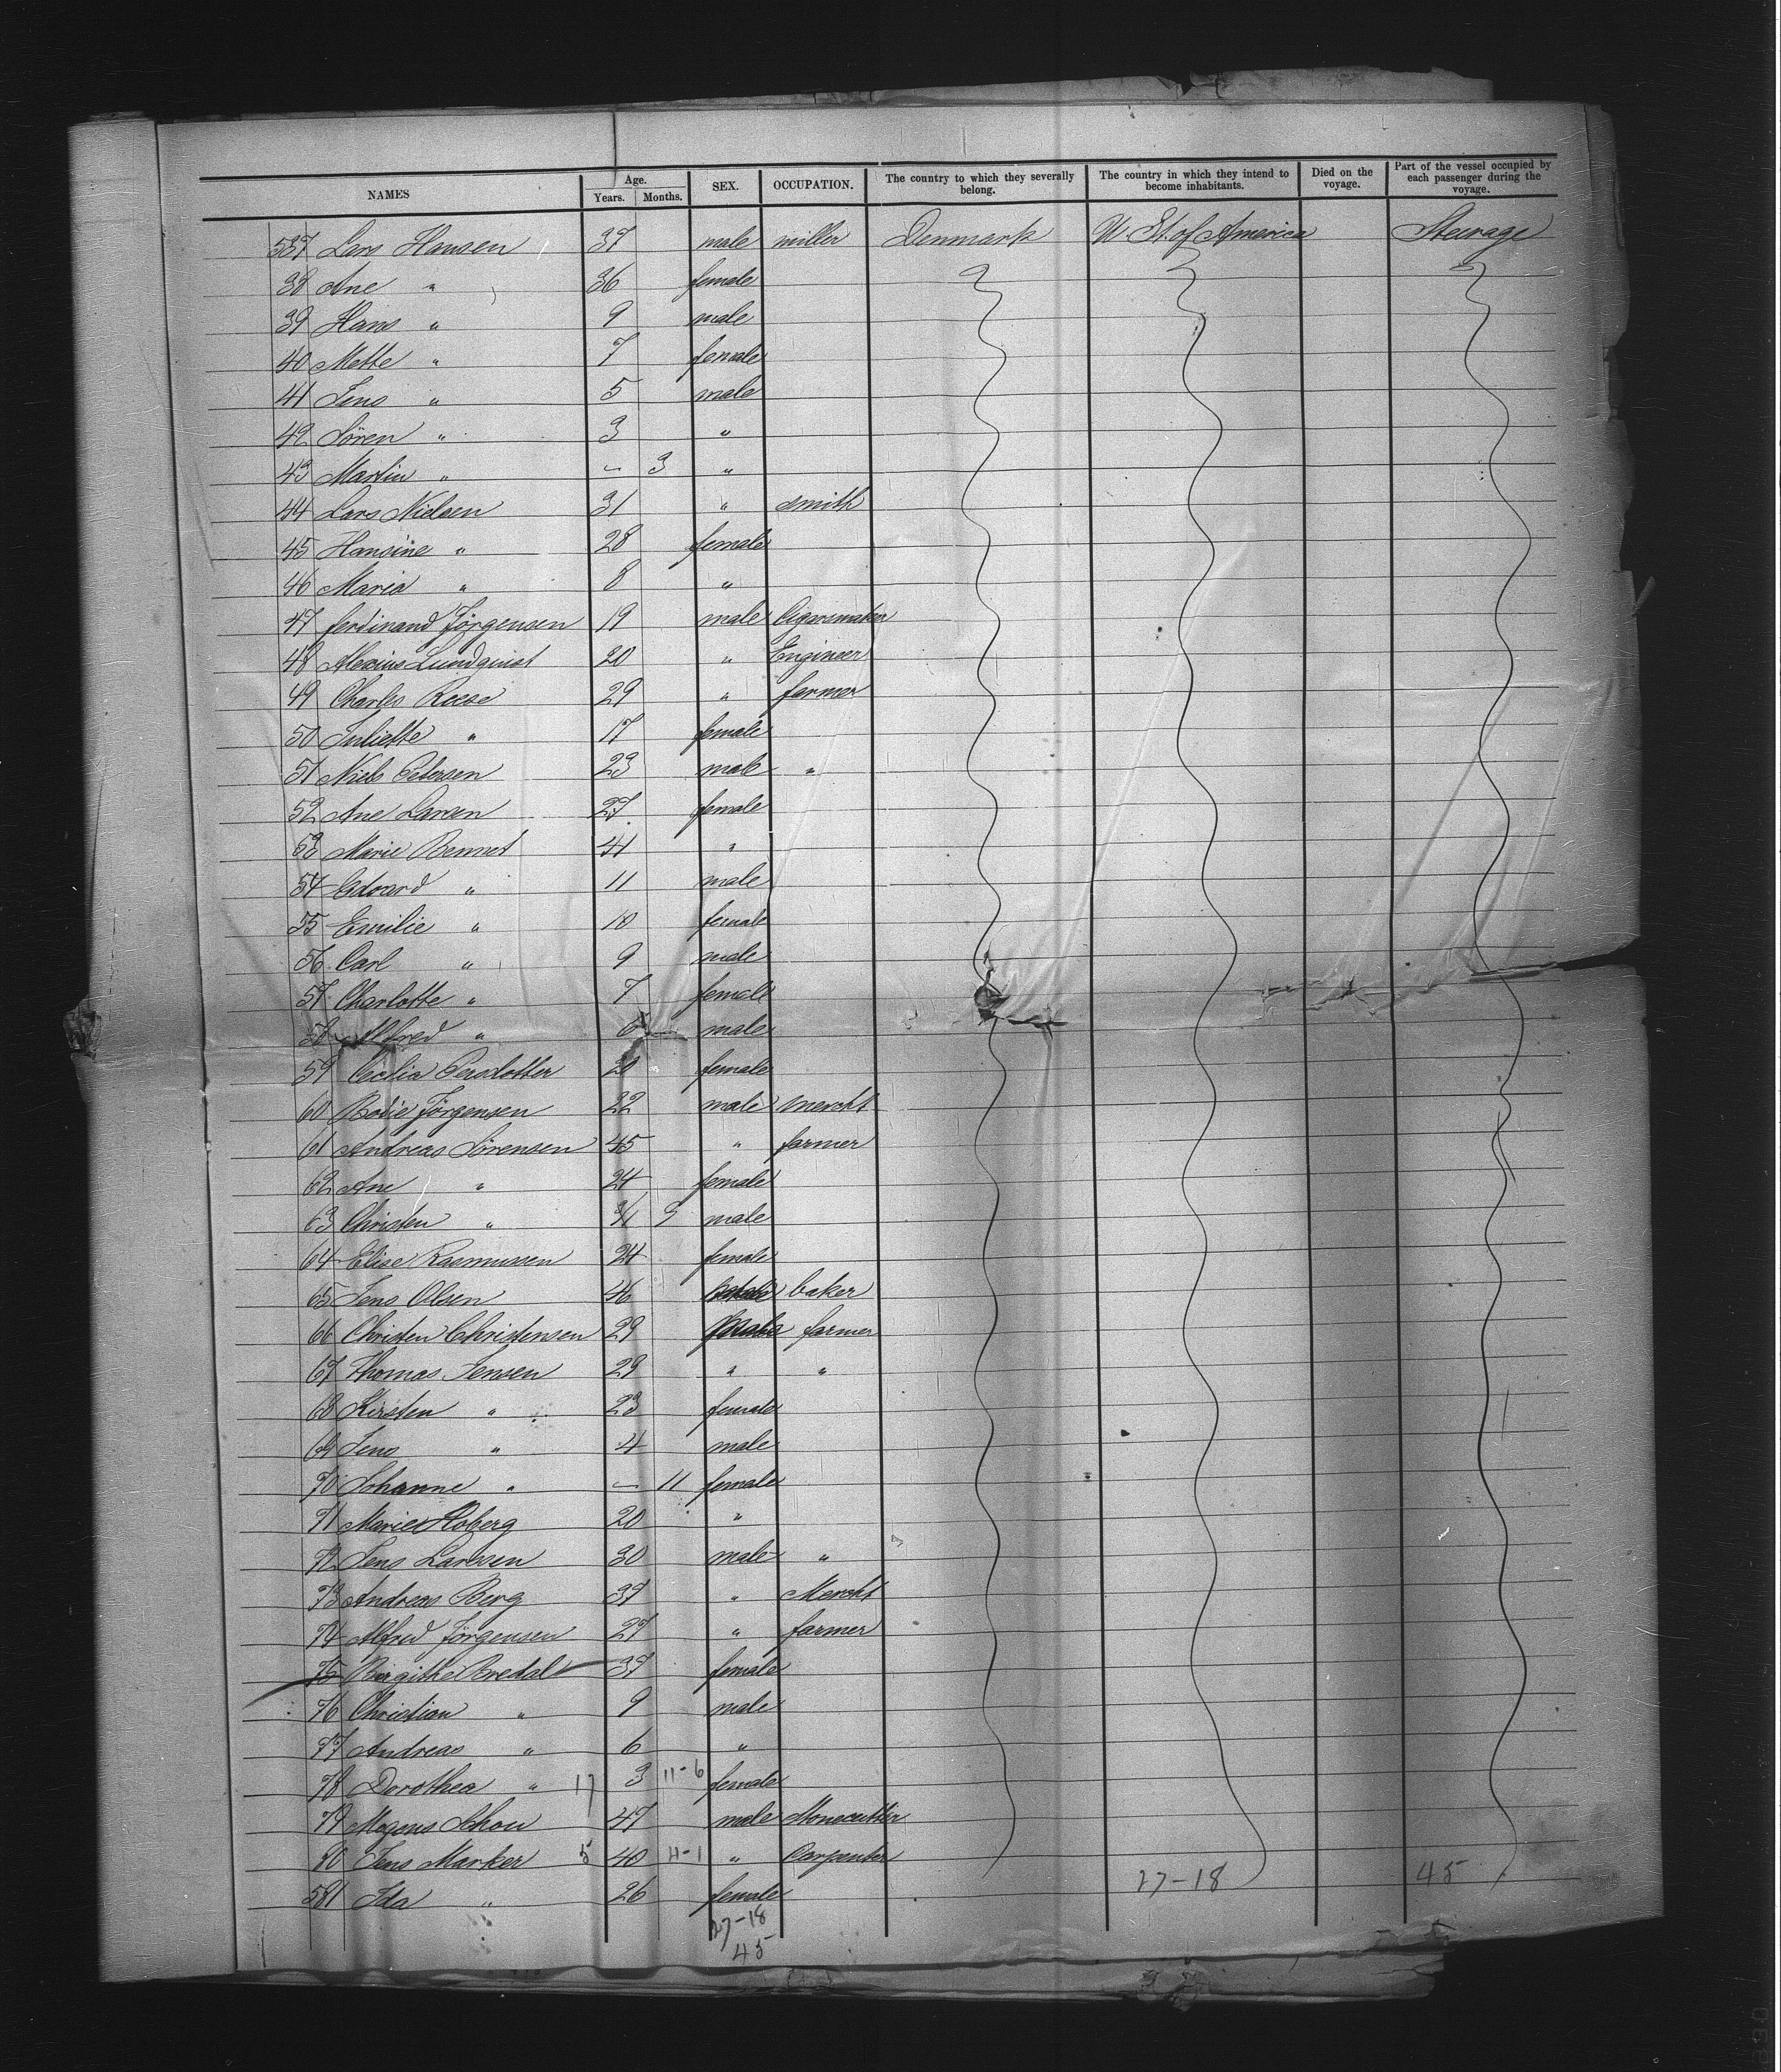 NAMES Age. Years. Months. SEX. OCCUPATION. The country to which they severally belong. The country in which they intend to become inhabitants. Died on the voyage. Part of the vessel occupied by each passenger during the voyage.
537 Lars Hansen 37 male miller Denmark U. St. of America Steerage
38 Ane " 36 female
39 Hans " 9 male
40 Mette " 7 female
41 Jens " 5 male
42 Sören " 3 "
43 Martin " – 3 "
44 Lars Nielsen 31 " smith
45 Hansine " 28 female
46 Maria " 8 "
47 Ferdinand Jörgensen 19 male Cigaremaker
48 Alexius Lundquist 20 " Engineer
49 Charles Reese 29 " farmer
50 Juliette " 17 female
51 Niels Petersen 23 male "
52 Ane Larsen 27 female
53 Marie Bennet 41 "
54 Edvard " 11 male
55 Emilie " 10 female
56 Carl " 9 male
57 Charlotte " 7 female
58 Alfred " 6 male
59 Cecilia Persdotter 20 female
60 Bodie Jörgensen 22 male Mercht
61 Andreas Sörensen 45 " farmer
62 Ane " 24 female
63 Christen " 9 male
64 Elise Rasmussen 24 female
65 Jens Olsen 46 male baker
66 Christen Christensen 29 Male farmer
67 Thomas Jensen 29 " "
68 Kirsten " 23 female
69 Jens " 4 male
70 Johanne " – 11 female
71 Marie Hoberg 20 "
72 Jens Larssen 30 male "
73 Andreas Berg 37 " Mercht
74 Alfred Jörgensen 27 " farmer
75 Birgithe Bredal 37 female
76 Christian " 9 male
77 Andreas " 6 "
78 Dorothea " 17 3 11-6 female
79 Mogens Schou 47 male Stonecutter
80 Jens Marker 5 40 4-1 " Carpenter
581 Ida " 26 female 27-18 45
27-18
45